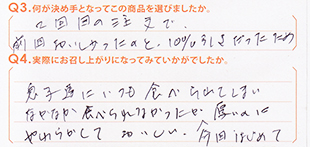 Q3.何が決め手となってこの商品を選びましたか。
2回目の注文で、
前回おいしかったのと、10%うしきだったため
Q4.実際にお召し上がりになってみていかがでしたか。
息子達にいつも食べられてしまい
なかなか食べられなかったが 厚いのに
やわらかくて おいしい。今回はじめて